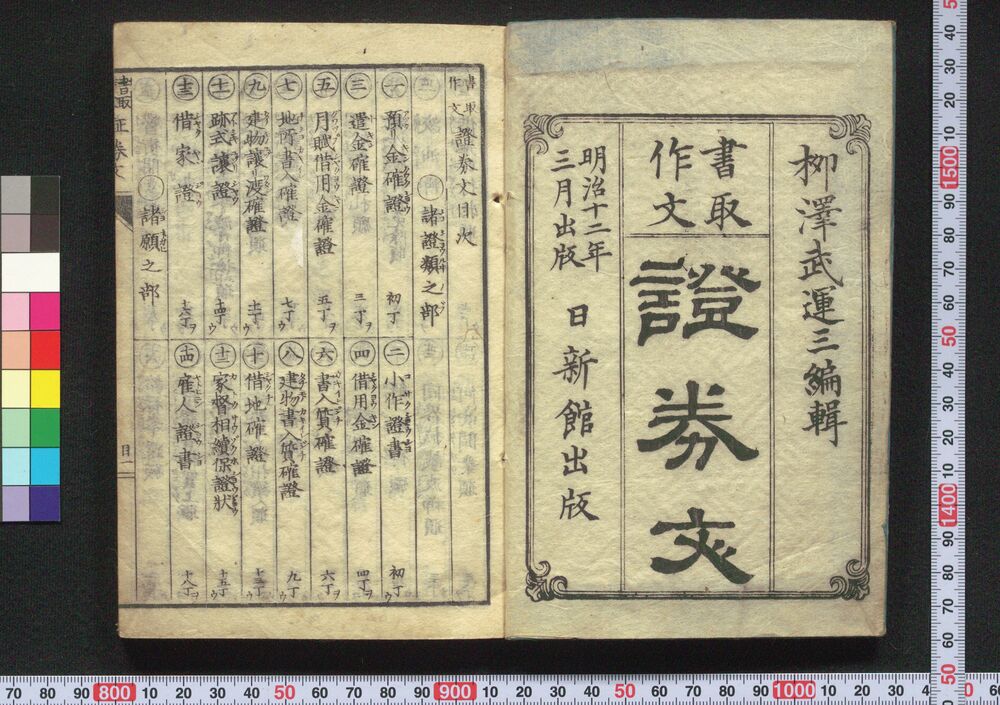 柳澤武運三編輯
書取
作文
證券文
明治十二年
三月出版
日新館出版
書取
作文
證券文目次
諸證類之部
一 預リ金確證 初丁
二 小作證書 初丁ウ
三 遣金確證 三丁ヲ
四 借用金確證 四丁ヲ
五 月賦借用金確證 五丁ヲ
六 書入質確證 六丁ヲ
七 地所書入確證 七丁ウ
八 建物書入質確證 九丁ウ
九 建物讓リ渡確證 十二丁ウ
十 借地確證 十三丁ウ
十一 跡式讓證 十四丁ウ
十二 家督相續保證狀 十五丁ウ
十三 借家證 十六丁ヲ
十四 雇人證書 十八丁ヲ
諸願之部
目一
70 80 90 800 10 20 30 40 50 60 70 80 90 900 10 20 30 40 50 60 70 80 90 1000 10 20 30 40
50 40 30 20 10 1500 90 80 70 60 50 40 30 20 10 1400 90 80 70 60 50